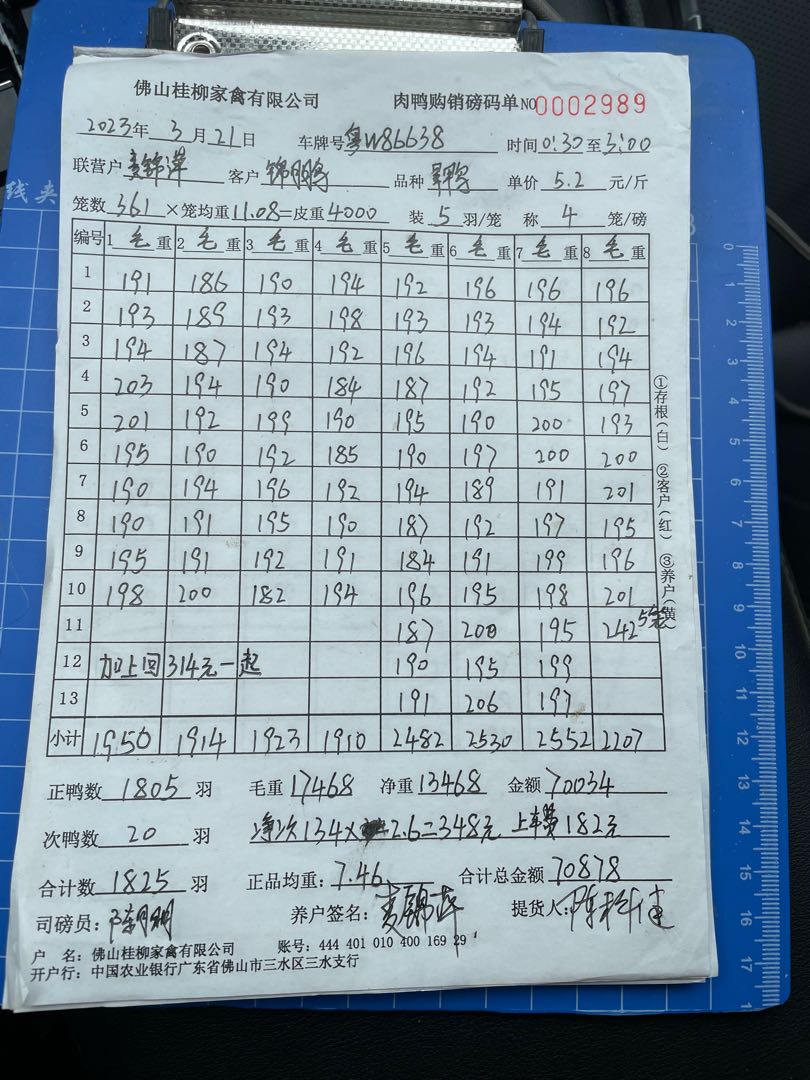 佛山桂柳家禽有限公司 肉鸭购销磅码单 NO 0002989
2023年 3月21日 车牌号 粤W86638 时间 0:30 至 3:00
联营户 麦锦萍 客户 品种 单价 5.2 元/斤
笼数 361 ×笼均重 11.08 =皮重 4000 装 5 羽/笼 称 4 笼/磅
编号 1 毛 重 2 毛 重 3 毛 重 4 毛 重 5 毛 重 6 毛 重 7 毛 重 8 毛 重
1 191 186 190 194 192 196 196 196
2 193 189 193 198 193 193 194 192
3 194 187 194 192 196 194 191 194
4 203 194 190 184 187 192 195 197
5 201 192 199 190 195 190 200 193
6 195 190 192 185 190 197 200 200
7 190 194 196 192 194 189 191 201
8 190 191 195 190 187 192 197 195
9 195 191 192 191 184 191 199 196
10 198 200 182 194 196 195 198 201
11 187 200 195 242 5笼
12 加上回314元一起 190 195 199
13 191 206 197
小计 1950 1914 1923 1910 2482 2530 2552 2207
①存根(白) ②客户(红) ③养户(黄)
正鸭数 1805 羽 毛重 17468 净重 13468 金额 70034
次鸭数 20 羽 净次134× 2.6=348元 上车费182元
合计数 1825 羽 正品均重: 7.46 合计总金额 70878
司磅员: 养户签名: 麦锦萍 提货人:
户 名: 佛山桂柳家禽有限公司 账号: 444 401 010 400 169 29
开户行: 中国农业银行广东省佛山市三水区三水支行
0
1
2
3
4
5
6
7
8
9
10
11
12
13
14
15
16
17